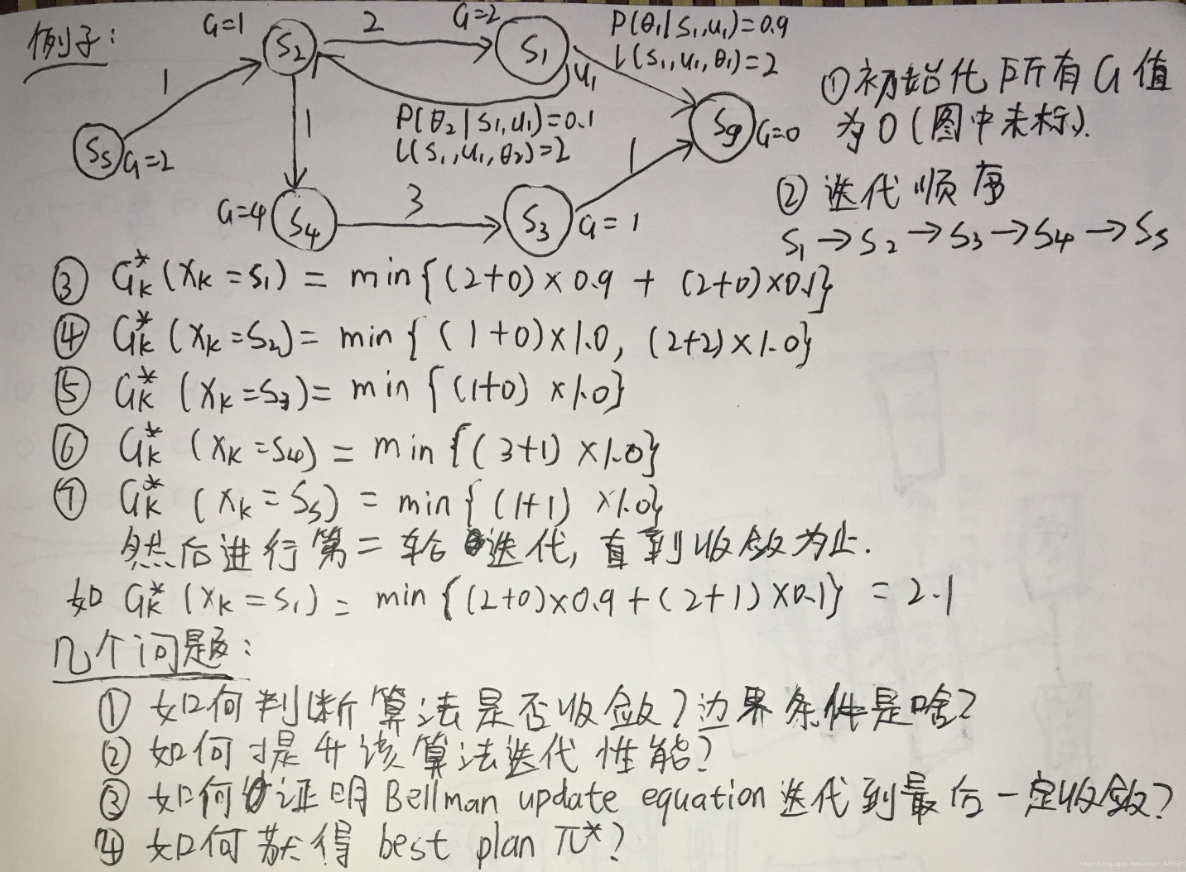 例子:
G=1
S2
2
G=2
S1
P(θ1|S1,u1)=0.9
L(S1,u1,θ1)=2
u1
1
P(θ2|S1,u1)=0.1
L(S1,u1,θ2)=2
Ss G=2
1
Sg G=0
1
G=4 S4
3
S3 G=1
① 初始化所有G值
为0(图中未标).
② 迭代顺序
S1→S2→S3→S4→Ss
③ G*k(Xk=S1) = min{(2+0)×0.9 + (2+0)×0.1}
④ G*k(Xk=S2) = min{(1+0)×1.0, (2+2)×1.0}
⑤ G*k(Xk=S3) = min{(1+0)×1.0}
⑥ G*k(Xk=S4) = min{(3+1)×1.0}
⑦ G*k(Xk=Ss) = min{(1+1)×1.0}
然后进行第二轮迭代,直到收敛为止.
如 G*k(Xk=S1) = min{(2+0)×0.9+(2+1)×0.1} = 2.1
几个问题:
① 如何判断算法是否收敛?边界条件是啥?
② 如何提升该算法迭代性能?
③ 如何证明Bellman update equation迭代到最后一定收敛?
④ 如何获得best plan π*?